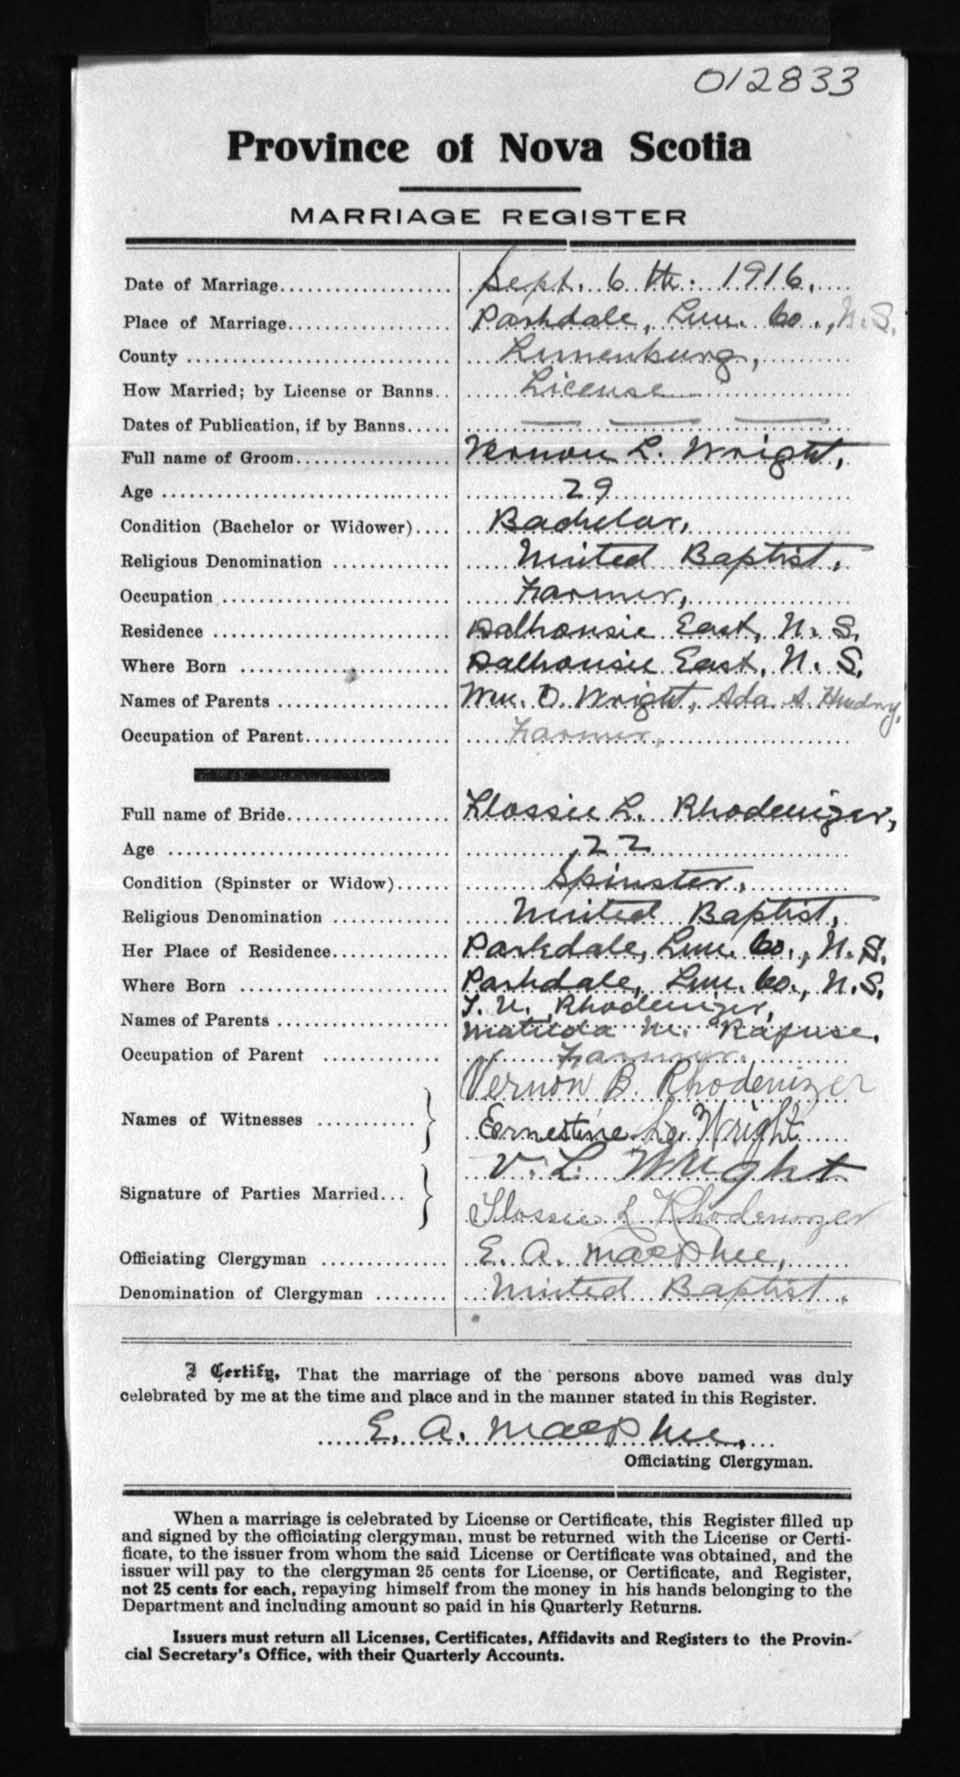 012833
Province of Nova Scotia
MARRIAGE REGISTER
Date of Marriage.................... Sept. 6th. 1916.
Place of Marriage.................. Parkdale, Lun. Co., N.S.
County ............................. Lunenburg,
How Married; by License or Banns.. License
Dates of Publication, if by Banns..... — — —
Full name of Groom.................. Vernon L. Wright,
Age ................................ 29
Condition (Bachelor or Widower).... Bachelor,
Religious Denomination ............. United Baptist,
Occupation ......................... Farmer,
Residence .......................... Dalhousie East, N. S.
Where Born ......................... Dalhousie East, N. S.
Names of Parents ................... Wm. O. Wright, Ada S.
Occupation of Parent................ Farmer,
Full name of Bride.................. Flossie L. Rhodenizer,
Age ................................ 22
Condition (Spinster or Widow)...... Spinster,
Religious Denomination ............. United Baptist,
Her Place of Residence............. Parkdale, Lun. Co., N.S.
Where Born ......................... Parkdale, Lun. Co., N.S.
Names of Parents ................... Rhodenizer,
Matilda M. Rafuse.
Occupation of Parent ............. Farmer.
Names of Witnesses ........... Vernon B. Rhodenizer
Ernestine Wright
Signature of Parties Married... V. L. Wright
Flossie L Rhodenizer
Officiating Clergyman .............. E. A. MacPhee,
Denomination of Clergyman ........ United Baptist.
I Certify, That the marriage of the persons above named was duly
celebrated by me at the time and place and in the manner stated in this Register.
E. A. MacPhee,
Officiating Clergyman.
When a marriage is celebrated by License or Certificate, this Register filled up
and signed by the officiating clergyman, must be returned with the License or Certi-
ficate, to the issuer from whom the said License or Certificate was obtained, and the
issuer will pay to the clergyman 25 cents for License, or Certificate, and Register,
not 25 cents for each, repaying himself from the money in his hands belonging to the
Department and including amount so paid in his Quarterly Returns.
Issuers must return all Licenses, Certificates, Affidavits and Registers to the Provin-
cial Secretary's Office, with their Quarterly Accounts.